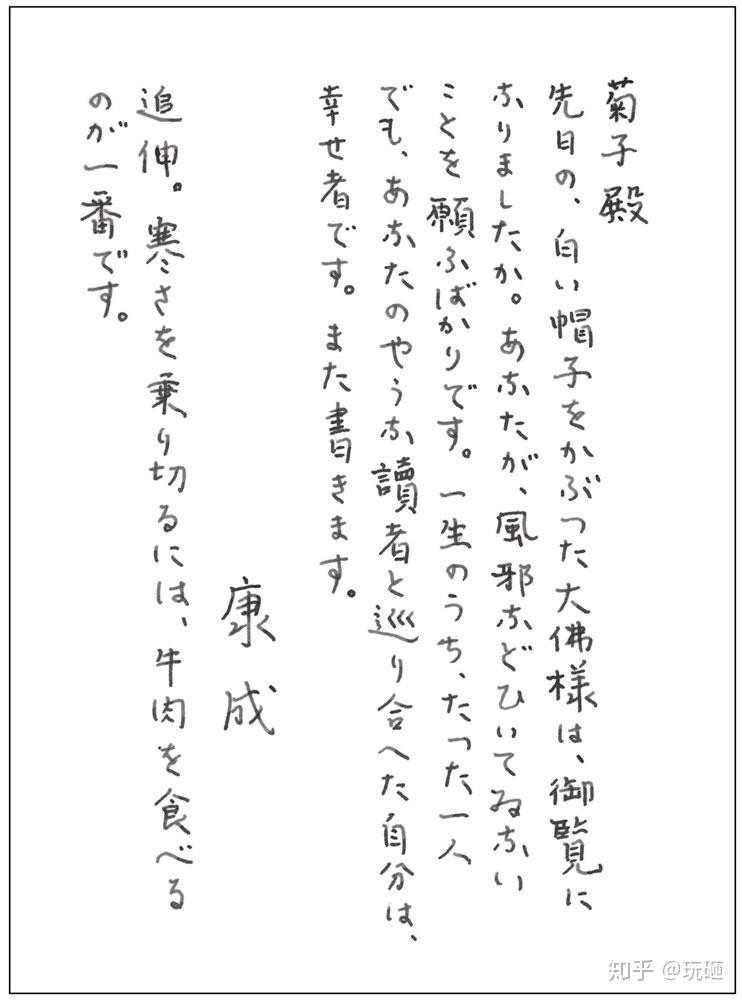 菊子殿
先日の、白い帽子をかぶつた大佛様は、御覧に
なりましたか。あなたが、風邪などひいてゐない
ことを願ふばかりです。一生のうち、たつた一人
でも、あなたのやうな讀者と巡り合へた自分は、
幸せ者です。また書きます。
康成
追伸。寒さを乗り切るには、牛肉を食べる
のが一番です。
知乎 @玩砸